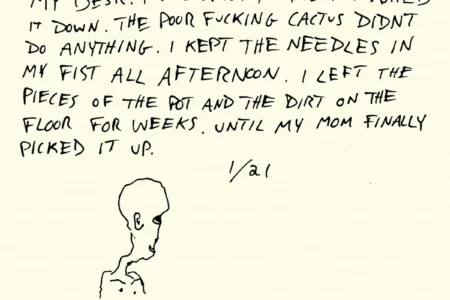 MY DESK.
IT DOWN. THE POOR FUCKING CACTUS DIDNT
DO ANYTHING. I KEPT THE NEEDLES IN
MY FIST ALL AFTERNOON. I LEFT THE
PIECES OF THE POT AND THE DIRT ON THE
FLOOR FOR WEEKS. UNTIL MY MOM FINALLY
PICKED IT UP.
1/21